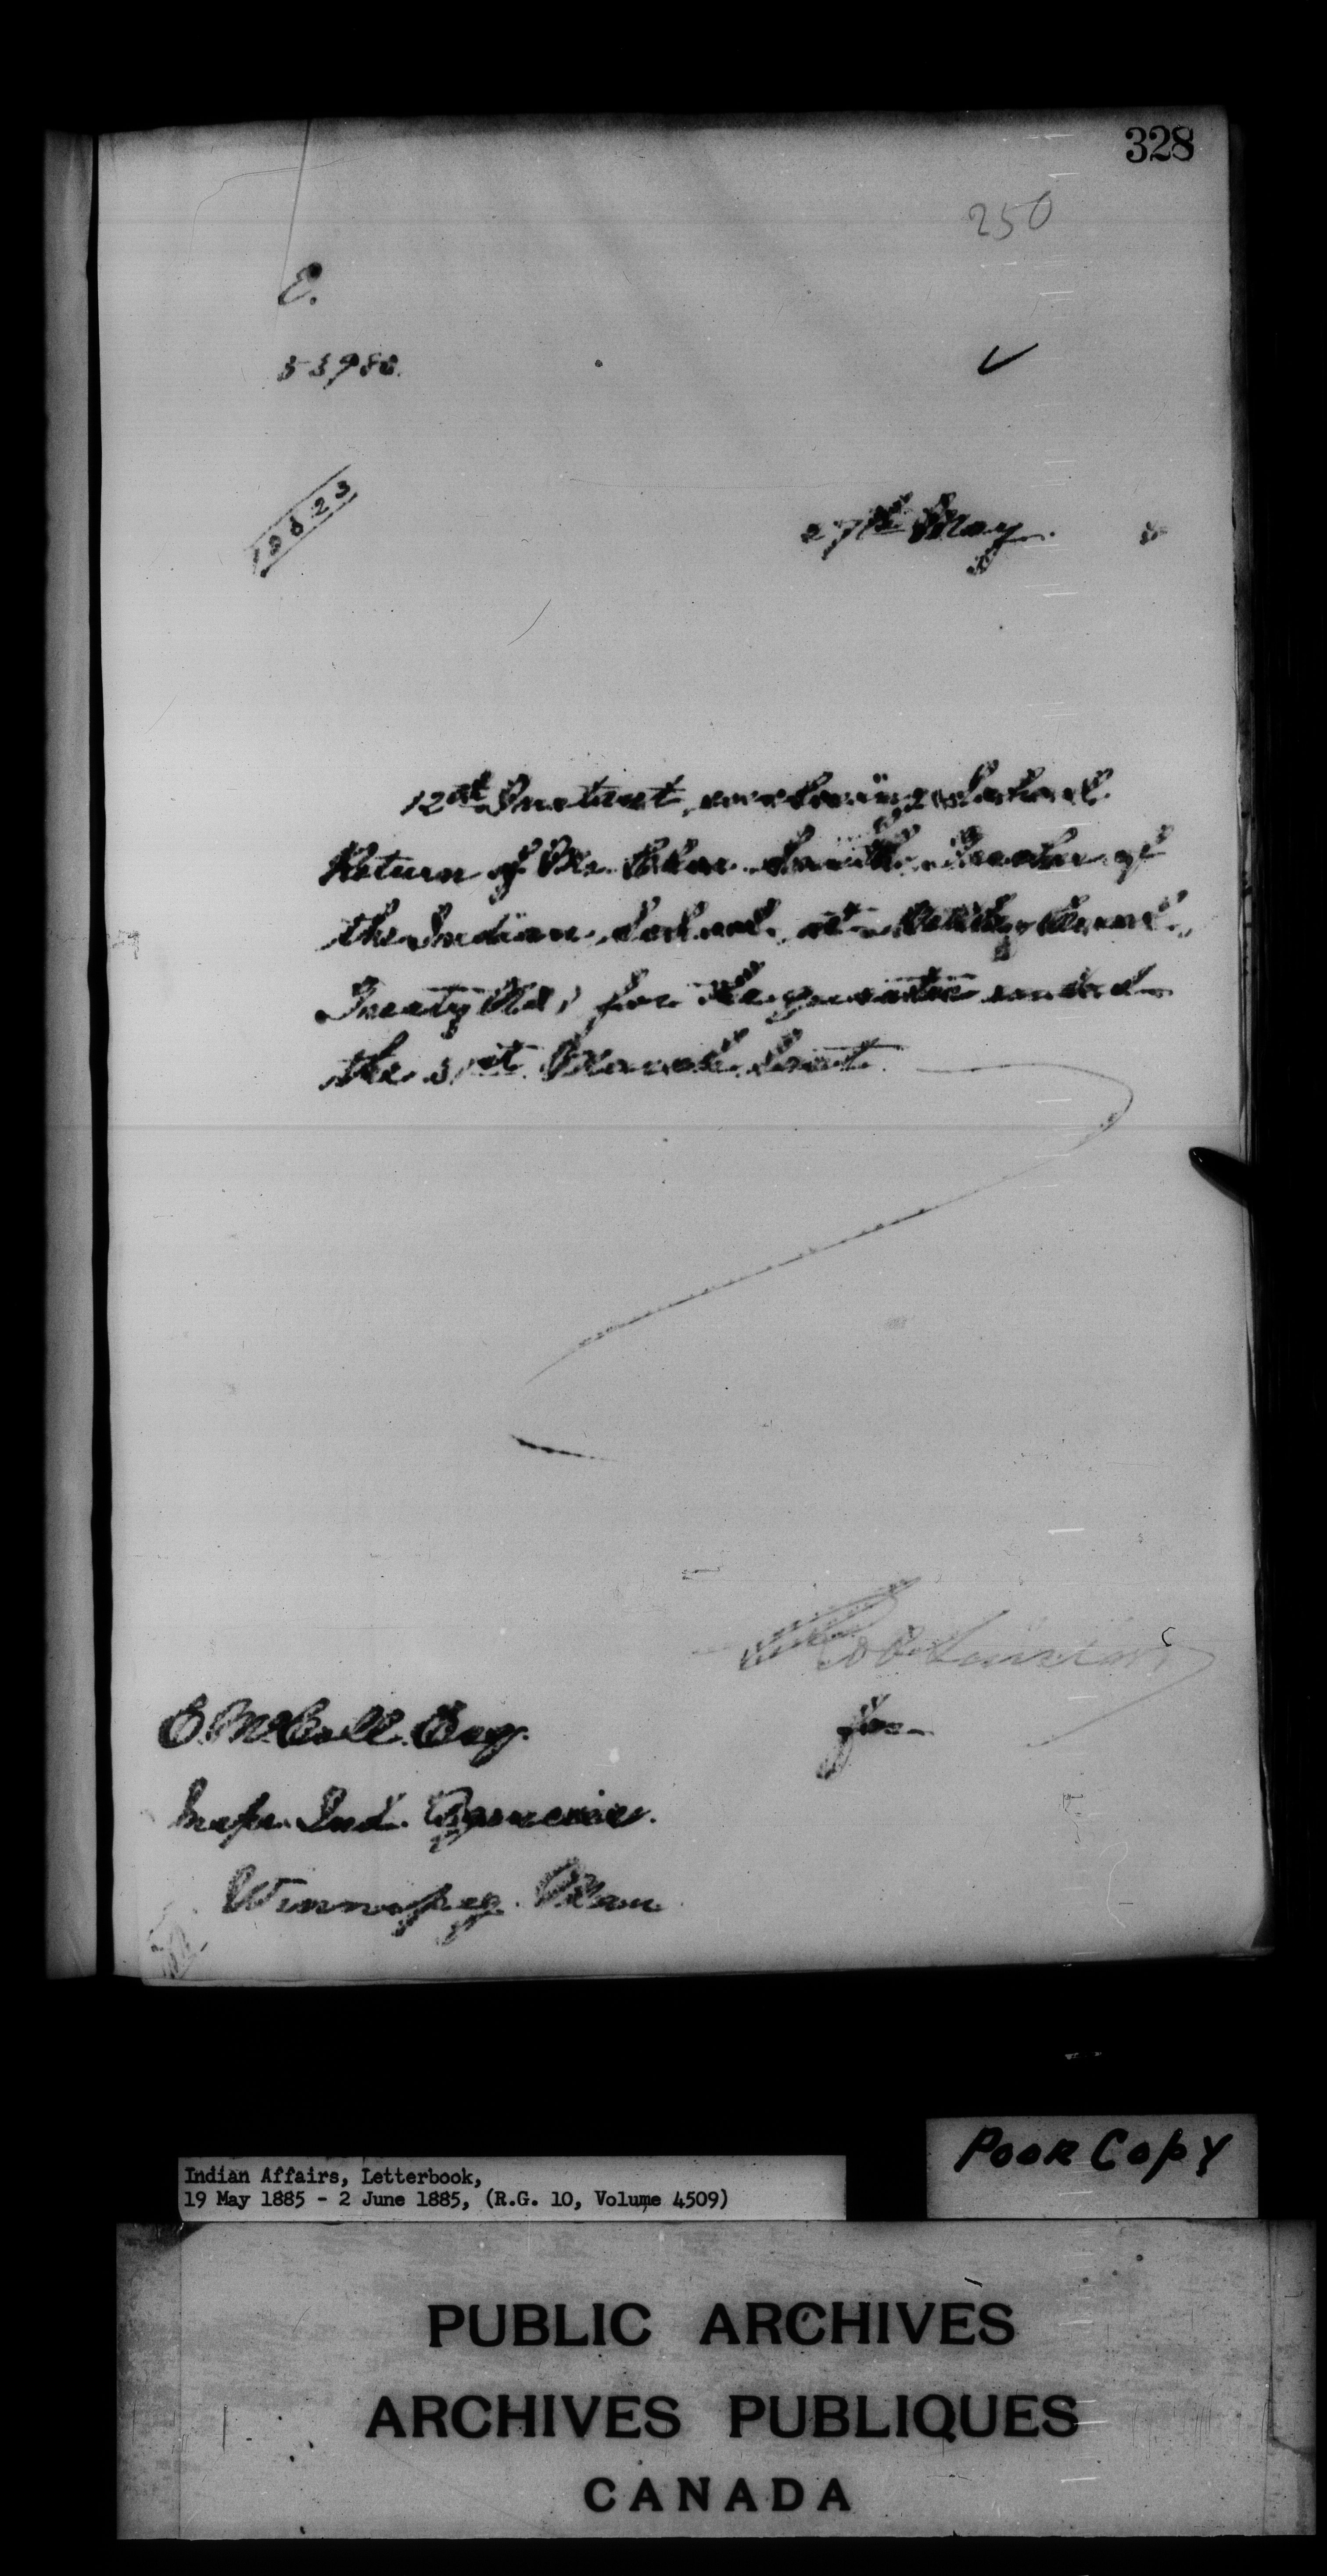 328
250
E.
53980.
19623
27th May. 8
12th Instant enclosing School
Return of the Teacher of
the Indian School at
Treaty No 1 for the quarter ended
the 31st March last
for
E. McColl Esq.
Insp. Ind. Agencies.
Winnipeg Man
Poor Copy
Indian Affairs, Letterbook,
19 May 1885 - 2 June 1885, (R.G. 10, Volume 4509)
PUBLIC ARCHIVES
ARCHIVES PUBLIQUES
CANADA